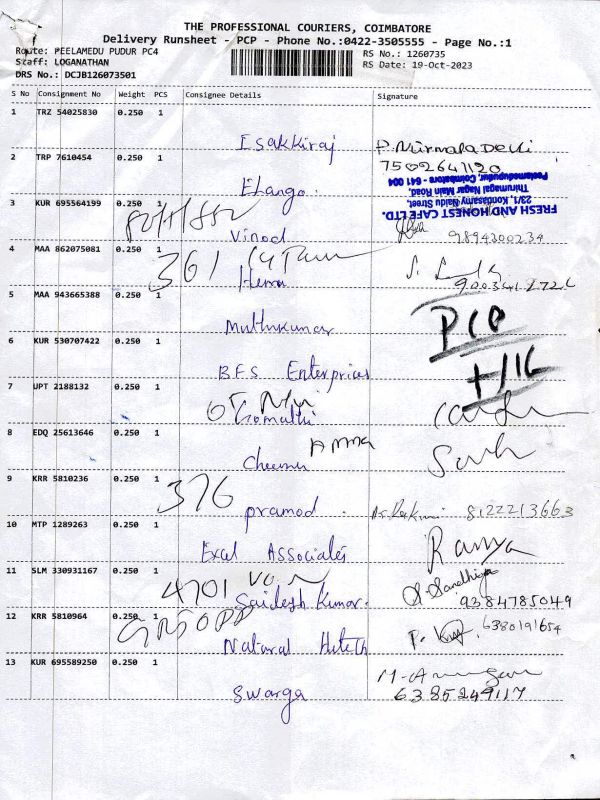 THE PROFESSIONAL COURIERS, COIMBATORE
Delivery Runsheet - PCP - Phone No.:0422-3505555 - Page No.:1
Route: PEELAMEDU PUDUR PC4
RS No.: 1260735
Staff: LOGANATHAN
RS Date: 19-Oct-2023
DRS No.: DCJB126073501
S No Consignment No Weight PCS Consignee Details Signature
1 TRZ 54025830 0.250 1
Esakkiraj P. Nirmala Devi
7502641120
2 TRP 7610454 0.250 1
Elango.
FRESH AND HONEST CAFE LTD.
23/1, Kondasamy Naidu Street,
Thirumagal Nagar Main Road,
Peelamedupudur, Coimbatore - 641 004
3 KUR 695564199 0.250 1
Vinod 9894300234
4 MAA 862075081 0.250 1
361
Hema
5 MAA 943665388 0.250 1
Muthukumar
6 KUR 530707422 0.250 1
BFS Enterprices
7 UPT 2188132 0.250 1
Gomathi
8 EDQ 25613646 0.250 1
Amma
Cheenu
9 KRR 5810236 0.250 1
376
pramod. 8122213663
10 MTP 1289263 0.250 1
Excel Associates Ramya
11 SLM 330931167 0.250 1
4701
Sailesh Kumar. S. Sandhiya
9384785049
12 KRR 5810964 0.250 1
Natural 6380191654
13 KUR 695589250 0.250 1
Swarga 6385249117